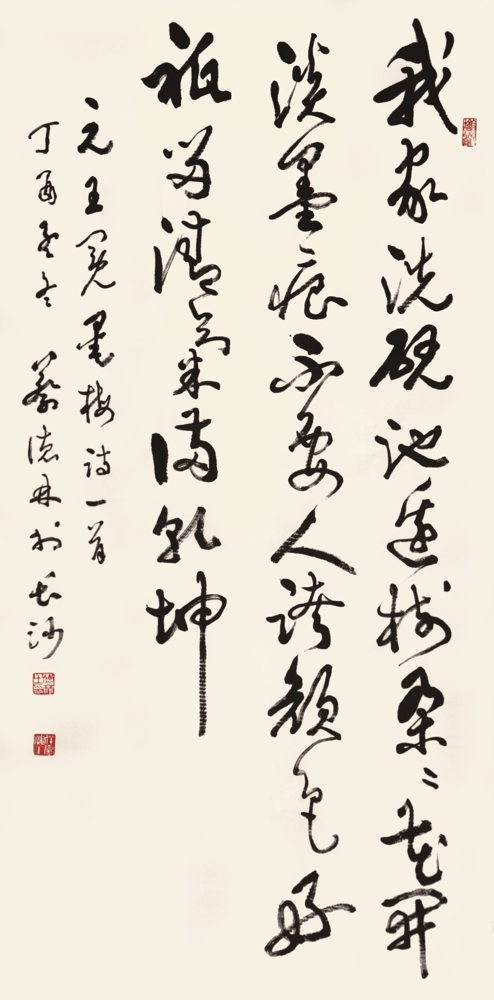 我家洗硯池邊樹朵〻花開
淡墨痕不要人誇顏色好
祇留清氣滿乾坤
元王冕墨梅詩一首
丁酉冬蔡德於長沙